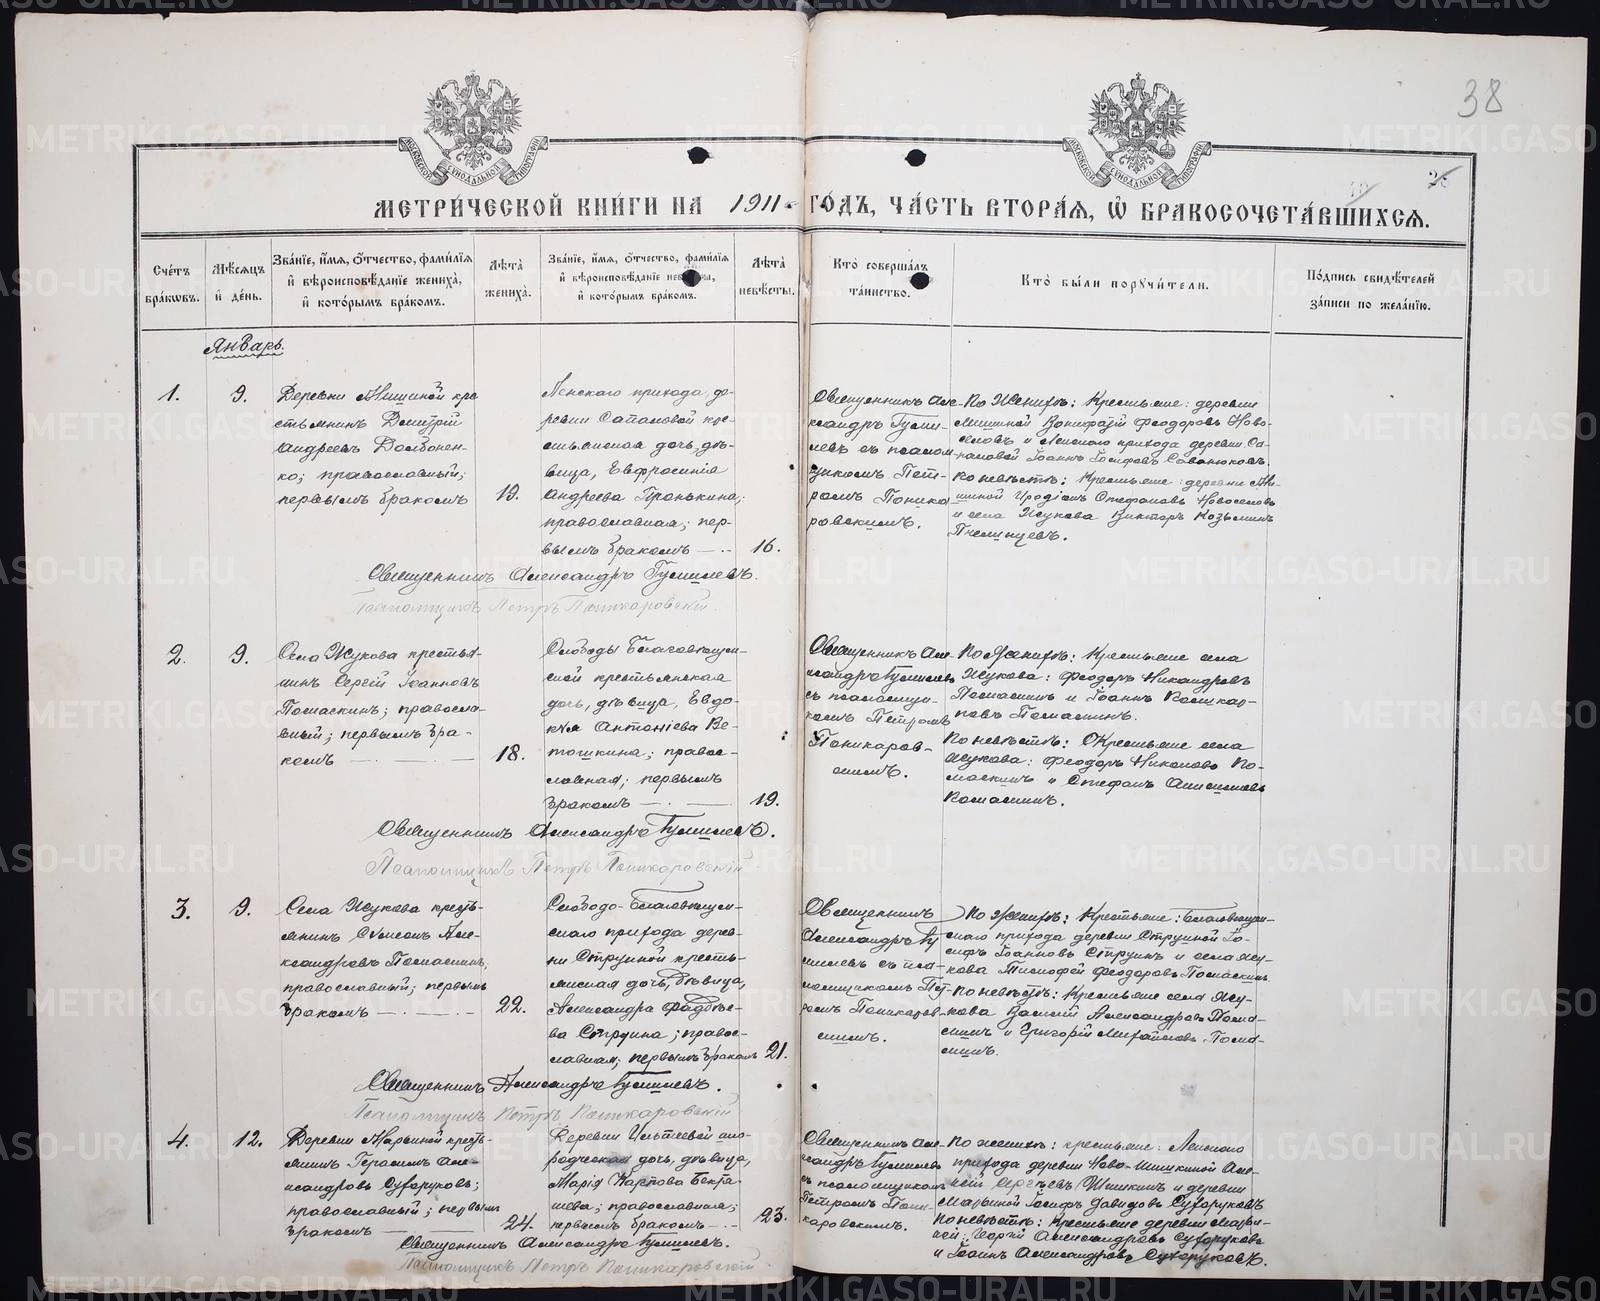 38
МЕТРИ́ЧЕСКОЙ КНИ́ГИ НА 1911 ГО́ДЪ, ЧА́СТЬ ВТОРА́Я, Ѽ БРАКОСОЧЕТА́ВШИХСѦ.
Сче́тъ бра́кωвъ.
Мѣ́сѧцъ и́ де́нь.
Зва́нїе, и́мѧ, ѻ́тчество, фами́лїѧ и́ вѣроисповѣ́данїе жениха̀, и́ кото́рымъ бра́комъ.
Лѣ́та жениха̀.
Зва́нїе, и́мѧ, ѻ́тчество, фами́лїѧ и́ вѣроисповѣ́данїе невѣ́сты, и́ кото́рымъ бра́комъ.
Лѣ́та невѣ́сты.
Кто̀ соверша́лъ та́инство.
Кто̀ бы́ли порꙋчи́тели.
По́дпись свидѣ́телей за́писи по жела́нїю.
Январь.
1.
9.
Деревни Мишиной кре
стьянинъ Дмитрій
Андреевъ Долбонен-
ко; православный;
первымъ бракомъ
19.
Ленскаго прихода де-
ревни Сапаловой кре-
стьянская дочь, дѣ-
вица, Евфросинія
Андреева Пронькина;
православная; пер-
вымъ бракомъ
16.
Священникъ Але-
ксандръ Гуми-
левъ съ псалом-
щикомъ Пет-
ромъ Поника
ровскимъ.
По Женихѣ: Крестьяне: деревни
Мишиной Вонифатій Феодоровъ Ново-
селовъ и Ленскаго прихода деревни Са-
паловой Іоаннъ Іосифовъ Савонюковъ.
По невѣстѣ: Крестьяне: деревни Ми-
шиной Иродіонъ Стефановъ Новоселовъ
и села Жукова Викторъ Козьминъ
Священникъ Александръ Гумилевъ.
Псаломщикъ Петръ Поникаровскій.
2.
9.
Села Жукова крестья-
нинъ Сергій Іоанновъ
Помаскинъ; правосла-
вный; первымъ бра-
комъ
18.
Слободы Благовѣщен-
ской крестьянская
дочь, дѣвица, Евдо-
кія Антоніева Ве-
тошкина; правос-
лавная; первымъ
бракомъ
19.
Священникъ Але-
ксандръ Гумилевъ
съ псаломщи-
комъ Петромъ
Поникаров-
скимъ.
По Женихѣ: Крестьяне села
Жукова: Феодоръ Никандровъ
Помаскинъ и Іоаннъ
Помаскинъ.
По невѣстѣ: Крестьяне села
Жукова: Феодоръ Николаевъ По-
маскинъ и Стефанъ
Помаскинъ.
Священникъ Александръ Гумилевъ.
Псаломщикъ Петръ Поникаровскій
3.
9.
Села Жукова кресть-
янинъ Сѵмеонъ Але-
ксандровъ Помаскинъ;
православный; первымъ
бракомъ
22.
Слободо-Благовѣщен-
скаго прихода дерев-
ни Струиной кресть-
янская дочь, дѣвица,
Александра Фаддѣе-
ва Струина; правос-
лавная; первымъ бракомъ
21.
Священникъ
Александръ Гу
милевъ съ пса-
ломщикомъ Пет-
ромъ Поникаров-
скимъ.
По Женихѣ: Крестьяне: Благовѣщен-
скаго прихода деревни Струиной Іо-
сифъ Іоанновъ Струинъ и села Жу-
кова Тимофей Феодоровъ Помаскинъ
По невѣстѣ: Крестьяне села Жу-
кова Василій Александровъ Пома-
скинъ и Григорій Михайловъ Пома-
скинъ.
Священникъ Александръ Гумилевъ.
Псаломщикъ Петръ Поникаровскій
4.
12.
Деревни Марьиной кресть-
янинъ Герасимъ Але-
ксандровъ Сухоруковъ;
православный; первымъ
бракомъ
24.
Деревни
дочь, дѣвица,
Марія Карпова Бекра-
шева; православная;
первымъ бракомъ
23.
Священникъ Але-
ксандръ Гумилевъ
съ псаломщикомъ
Петромъ Пони-
каровскимъ.
По женихѣ: крестьяне: Ленскаго
прихода деревни Ново-Шишкиной Але-
ксѣй Сергѣевъ Шишкинъ и деревни
Марьиной Іосифъ Давидовъ Сухоруковъ
По невѣстѣ: Крестьяне деревни Марьи-
ной: Георгій Александровъ Сухоруковъ
и Іоаннъ Александровъ Сухоруковъ.
Священникъ Александръ Гумилевъ.
Псаломщикъ Петръ Поникаровскій
METRIKI.GASO-URAL.RU